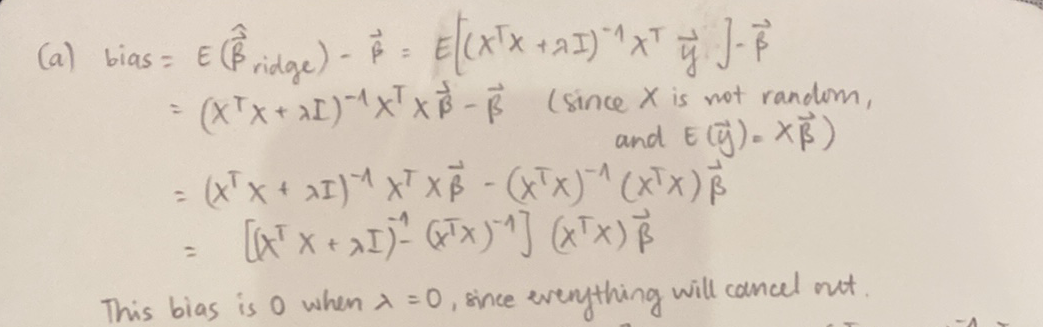 (a) bias = E(β̂⃗ ridge) - β⃗ = E[(XᵀX + λI)⁻¹ Xᵀ y⃗ ] - β⃗
= (XᵀX + λI)⁻¹ Xᵀ X β⃗ - β⃗ (since X is not random,
and E(y⃗) = Xβ⃗)
= (Xᵀ X + λI)⁻¹ Xᵀ X β⃗ - (XᵀX)⁻¹ (XᵀX) β⃗
= [(Xᵀ X + λI)⁻¹ - (XᵀX)⁻¹] (XᵀX) β⃗
This bias is 0 when λ = 0, since everything will cancel out.